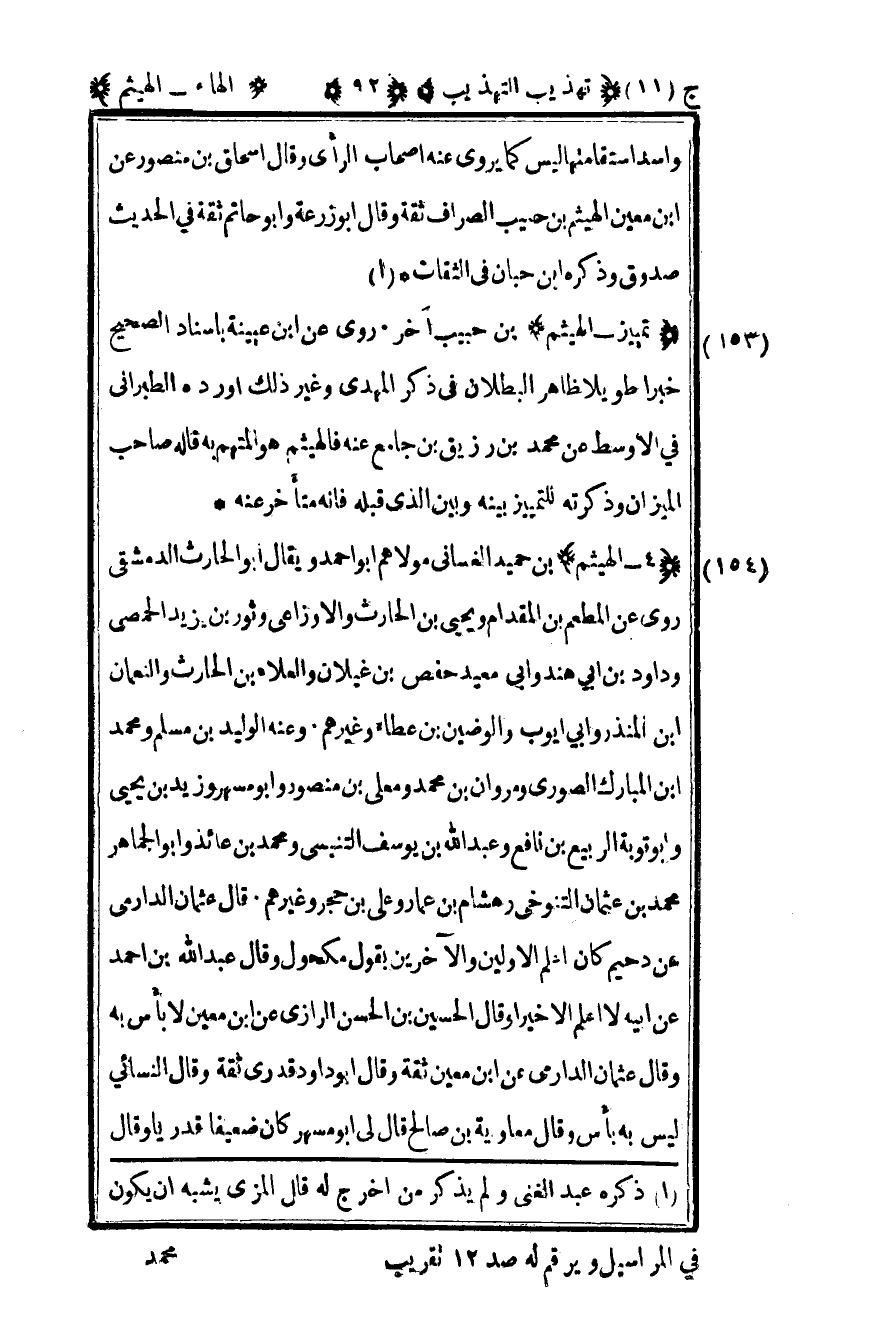 ج (١١) ﴿ تهذيب التهذيب ﴾ ﴿ ٩٢ ﴾ ﴿ الهاء ـ الهيثم ﴾
واسد استقامتها ليس كما يروى عنه اصحاب الرأى وقال اسحاق بن منصور عن
ابن معين الهيثم بن حبيب الصراف ثقة وقال ابو زرعة وابو حاتم ثقة في الحديث
صدوق وذكره ابن حبان فى الثقات * (١)
(١٥٣) ﴿ تمييز ـ الهيثم ﴾ بن حبيب آخر . روى عن ابن عيينة باسناد الصحيح
خبرا طويلا ظاهر البطلان فى ذكر المهدى وغير ذلك اورده الطبرانى
في الاوسط عن محمد بن رزيق بن جامع عنه فالهيثم هو المتهم به قاله صاحب
الميزان وذكرته للتمييز بينه وبين الذى قبله فانه متأخر عنه *
(١٥٤) ﴿ ٤ ـ الهيثم ﴾ بن حميد الغسانى مولاهم ابو احمد ويقال ابو الحارث الدمشقى
روى عن المطعم بن المقدام ويحيى بن الحارث والاوزاعى وثور بن يزيد الحمصى
وداود بن ابي هند وابي معيد حفص بن غيلان والعلاء بن الحارث والنعمان
ابن المنذر وابي ايوب والوضين بن عطاء وغيرهم . وعنه الوليد بن مسلم ومحمد
ابن المبارك الصورى ومروان بن محمد ومعلى بن منصور وابو مسهر وزيد بن يحيى
وابو توبة الربيع بن نافع وعبد الله بن يوسف التنيسى ومحمد بن عائذ وابو الجماهر
محمد بن عثمان التنوخى وهشام بن عمار وعلى بن حجر وغيرهم . قال عثمان الدارمى
عن دحيم كان اعلم الاولين والآخرين بقول مكحول وقال عبد الله بن احمد
عن ابيه لا اعلم الا خيرا وقال الحسين بن الحسن الرازى عن ابن معين لا بأس به
وقال عثمان الدارمى عن ابن معين ثقة وقال ابو داود قدرى ثقة وقال النسائي
ليس به بأس وقال معاوية بن صالح قال لى ابو مسهر كان ضعيفا قدريا وقال
(١) ذكره عبد الغنى ولم يذكر من اخرج له قال المزى يشبه ان يكون
في المراسيل ويرقم له صد ١٢ تقريب
محمد